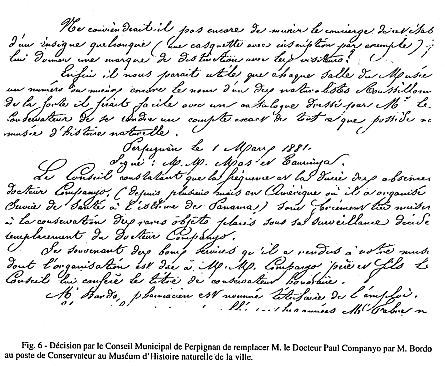 Ne conviendrait il pas encore de munir le concierge
d'un insigne quelconque (une casquette avec inscription par exemple)
lui donner une marque de distinction avec les visiteurs?
Enfin il nous parait utile que chaque salle du Musée
un numéro ou mieux encore le nom d'un des naturalistes Roussillon
de la sorte il serait facile avec un catalogue dressé par Mr le
Conservateur de se rendre un compte exact de tout ce que possède
musée d'histoire naturelle.
Perpignan le 1 Mars 1881.
Signé: M.M. Mas et
Le Conseil constatant que la fréquence et la durée des absences
docteur Companyo, (depuis plusieurs mois en Amérique où il a organisé
service de santé à l'isthme de Panama,) sont forcément
à la conservation des rares objets placés sous sa surveillance décide
remplacement du Docteur Companyo.
Se souvenant des bons services qu'il a rendus à votre
dont l'organisation est due à M.M. Companyo père et fils le
Conseil lui confère le titre de conservateur honoraire.
Mr Bordo, pharmacien est nommé titulaire de l'emploi.
Fig. 6 - Décision par le Conseil Municipal de Perpignan de remplacer M. le Docteur Paul Companyo par M. Bordo
au poste de Conservateur au Muséum d'Histoire naturelle de la ville.